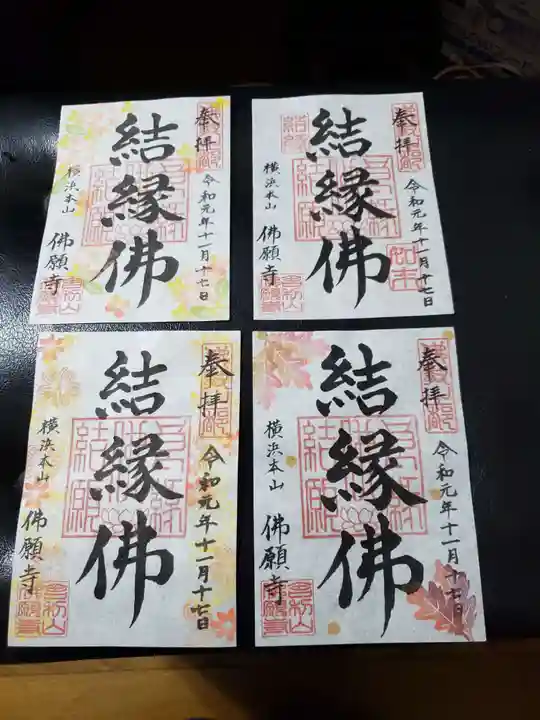 奉拝
令和元年十一月十七日
結縁佛
横浜本山
佛願寺
奉拝
令和元年十一月十七日
結縁佛
横浜本山
佛願寺
奉拝
令和元年十一月十七日
結縁佛
横浜本山
佛願寺
奉拝
令和元年十一月十七日
結縁佛
横浜本山
佛願寺